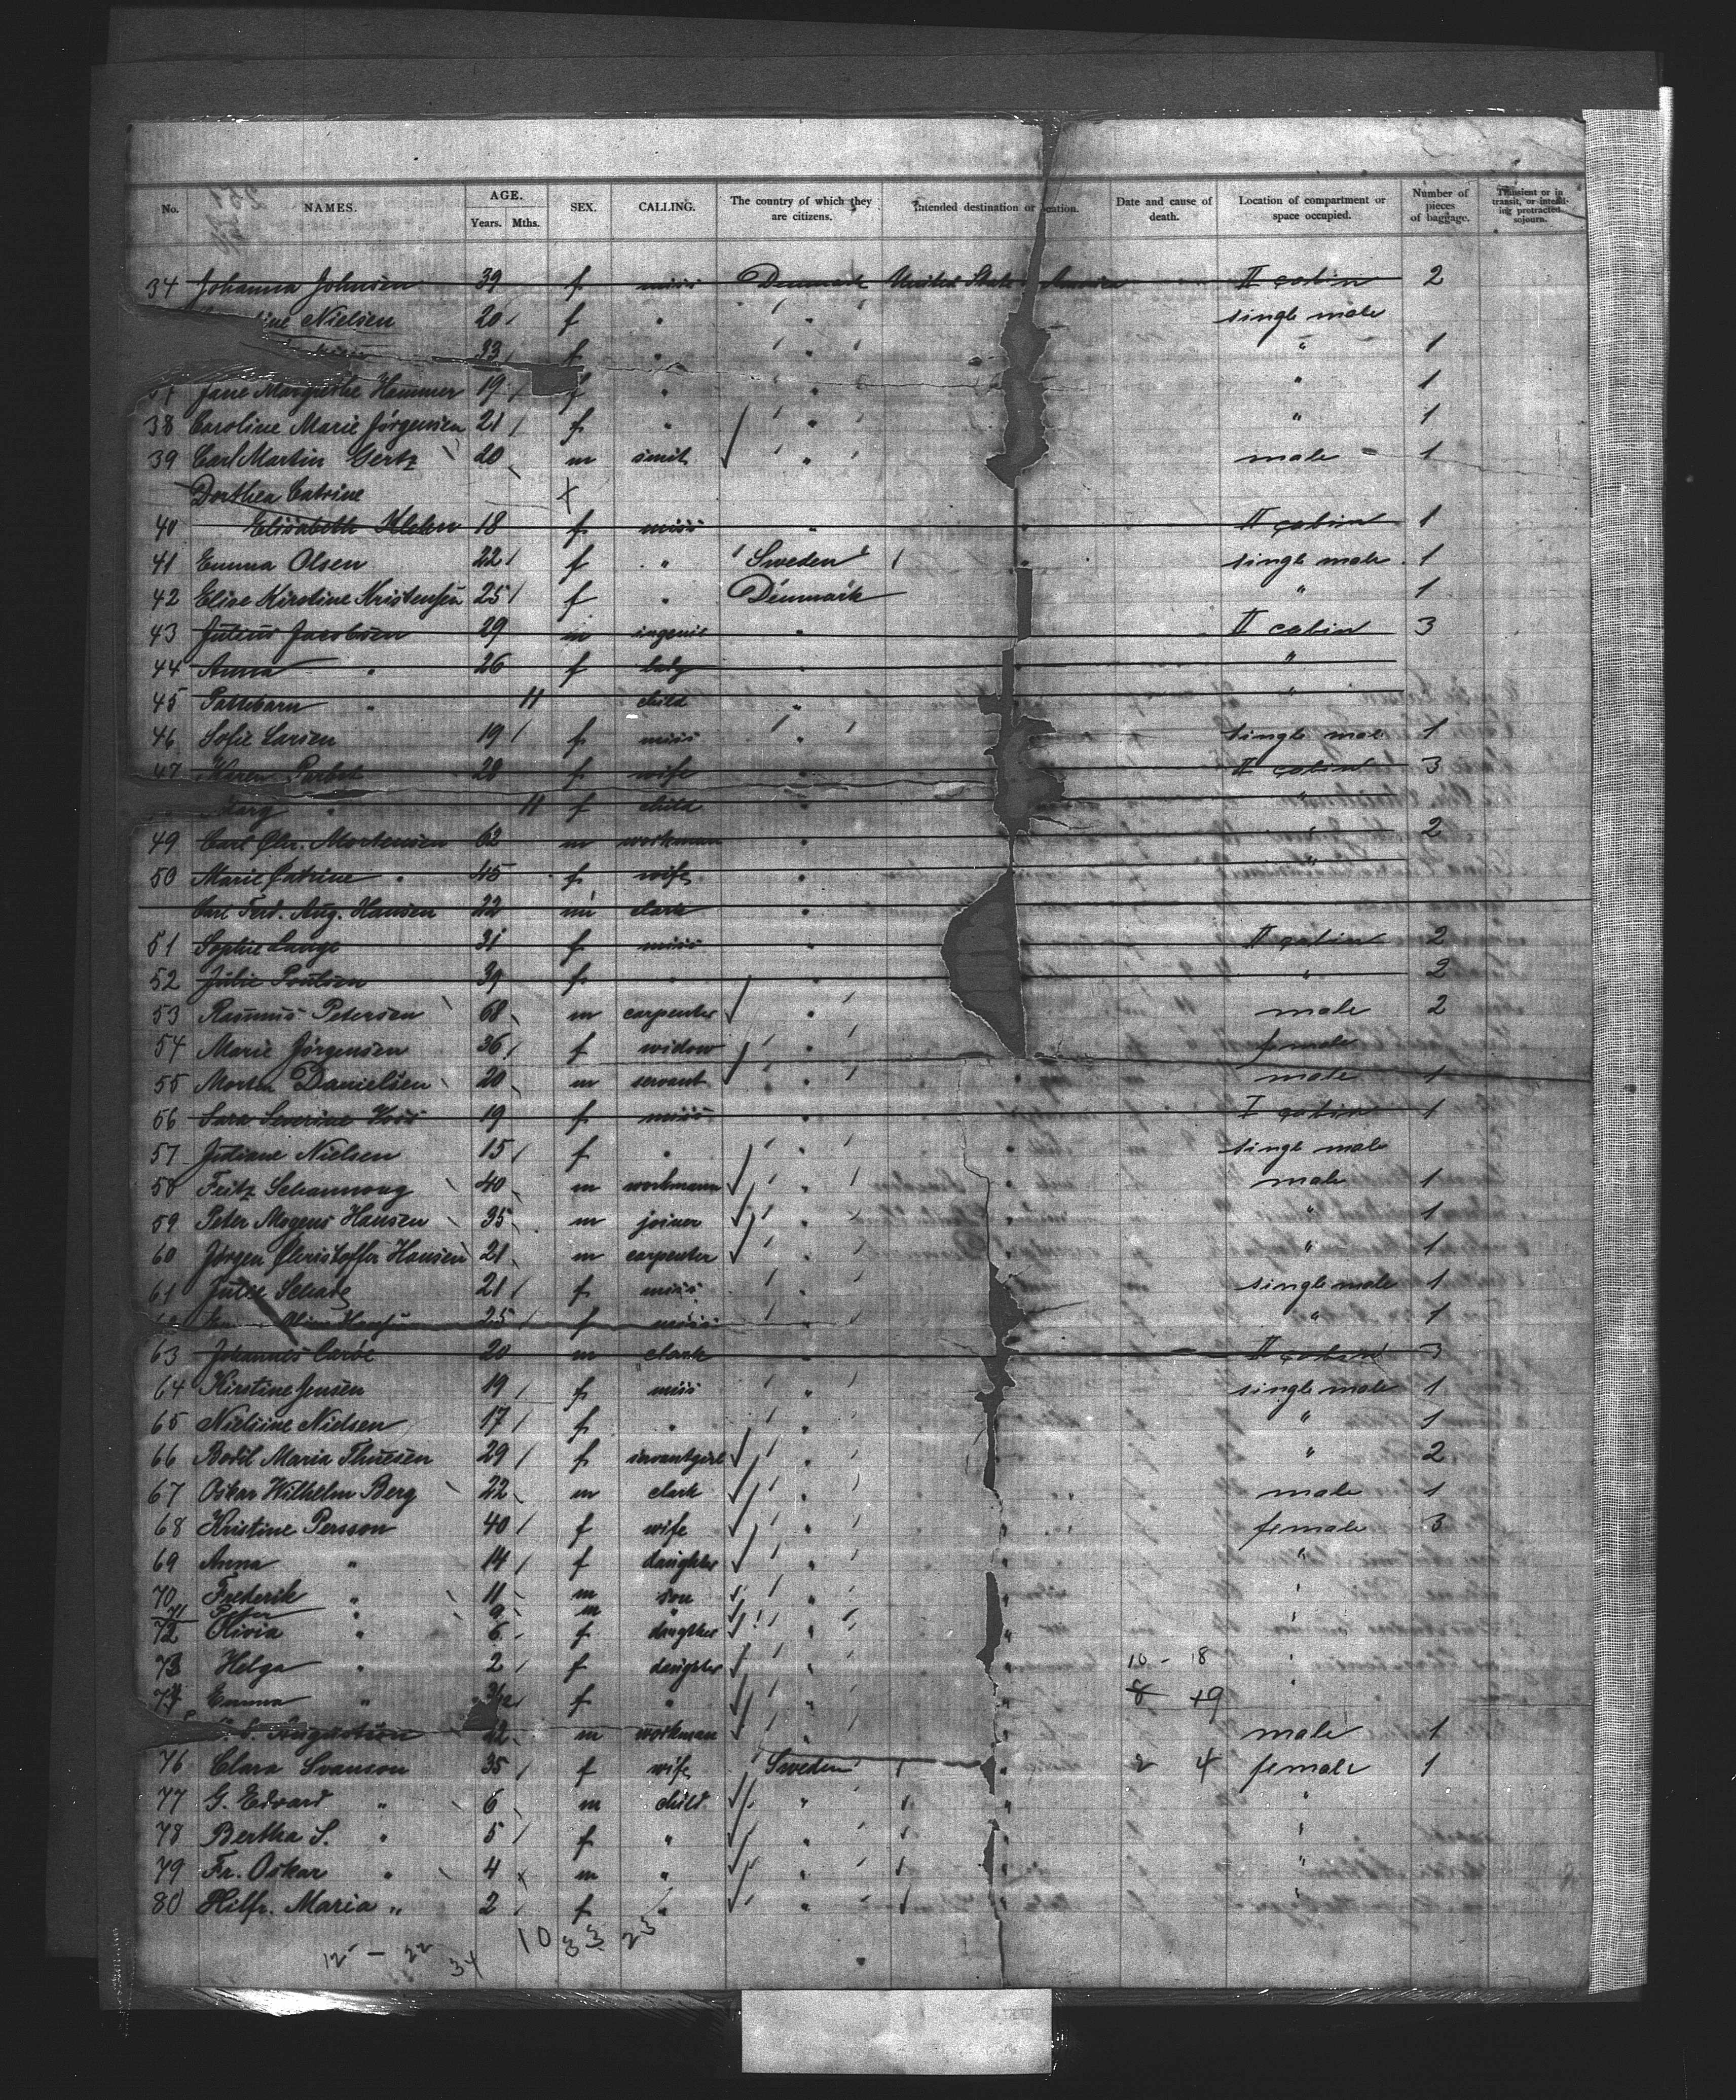 No. NAMES. AGE. Years. Mths. SEX. CALLING. The country of which they are citizens. Intended destination or location. Date and cause of death. Location of compartment or space occupied. Number of pieces of baggage. Transient or in transit, or intending protracted sojourn.
34 Johanna Johnsen 39 f miss Denmark United States America II cabin 2
Nielsen 20 f " " single male
33 f " " " 1
Jane Margrethe Hammer 19 f " " " 1
38 Caroline Marie Jörgensen 21 f " " " 1
39 Carl Martin Gertz 20 m smit " male 1
Dorthea Catrine
40 Elisabeth 18 f miss " " II cabin 1
41 Emma Olsen 22 f " Sweden " single male 1
42 Elise Kirstine Kristensen 25 f " Denmark " 1
43 Julius Jacobsen 29 m ingenie " II cabin 3
44 Anna " 26 f lady " "
45 Pattebarn " 11 child " "
46 Sofie Larsen 19 f miss " single male 1
47 Karen 28 f wife " II cabin 3
" 11 f child " "
49 Carl Chr. Mortensen 62 m workman " " 2
50 Marie Catrine " 45 f wife " "
Carl Ferd. Aug. Hansen 22 m clark "
51 Sophie Lange 31 f miss " II cabin 2
52 Julie Poulsen 39 f " " 2
53 Rasmus Petersen 68 m carpenter " male 2
54 Marie Jörgensen 36 f widow " female
55 Morten Danielsen 20 m servant " male 1
56 Sara Severine 19 f miss " I cabin 1
57 Juliane Nielsen 15 f " " " single male
58 Fritz Schannong 40 m workmann " " male 1
59 Peter Mogens Hansen 35 m joiner " " " 1
60 Jørgen Christoffer Hansen 21 m carpenter " " 1
61 Julie Schade 21 f miss " single male 1
25 f miss " 1
63 Johannes Caroe 20 m clark " II cabin 3
64 Kirstine Jensen 19 f miss " single male 1
65 Nielsine Nielsen 17 f " " " 1
66 Bodil Maria Thuesen 29 f servantgirl " " 2
67 Oskar Wilhelm Berg 22 m clark " male 1
68 Kristine Persson 40 f wife " " female 3
69 Anna " 14 f daughter " " "
70 Frederik " 11 m son " " "
71 Peter " 9 m " " "
72 Olivia " 6 f daughter " "
73 Helga " 2 f daughter " " 10 - 18 "
74 Emma " 3/12 f " " " 8 19 "
22 m workman " male 1
76 Clara Svanson 35 f wife Sweden " 2 4 female 1
77 G. Edvard " 6 m child " " "
78 Bertha S. " 5 f " " " "
79 Fr. Oskar " 4 m " " " "
80 Hilfr. Maria " 2 f " " "
12 - 22 34 10 33 23